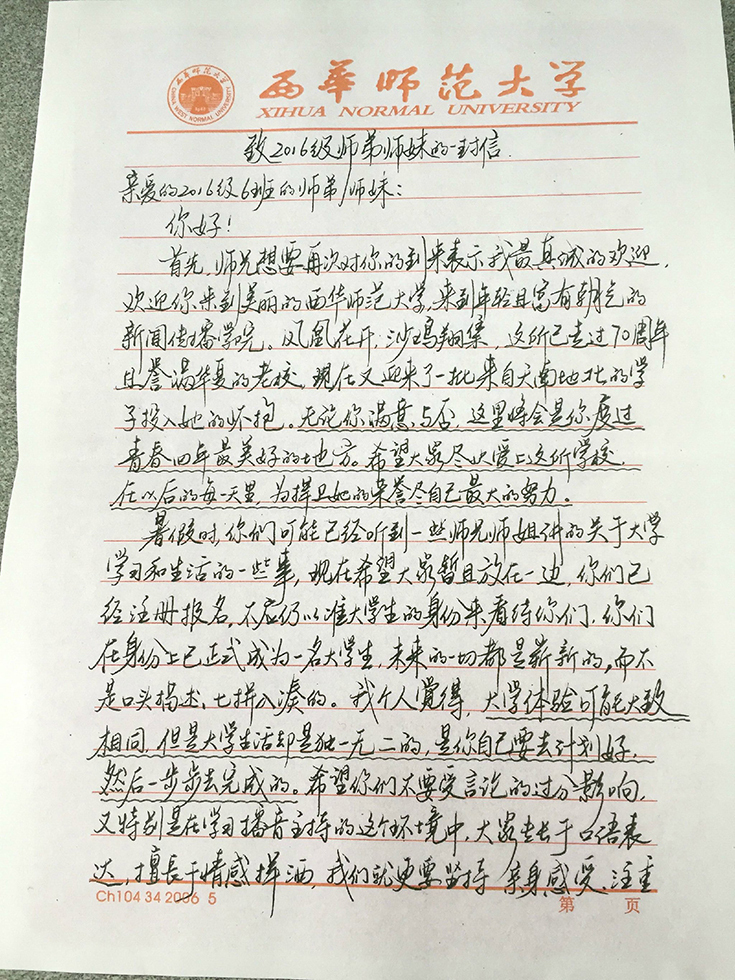 西华师范大学
XIHUA NORMAL UNIVERSITY
西华师范大学
CHINA WEST NORMAL UNIVERSITY
致2016级师弟师妹的一封信
亲爱的2016级6班的师弟/师妹：
你好！
首先，师兄想要再次对你的到来表示我最真诚的欢迎，
欢迎你来到美丽的西华师范大学，来到年轻且富有朝气的
新闻传播学院。凤凰花开，沙鸥翔集，这所已走过70周年
且誉满华夏的老校，现在又迎来了一批来自天南地北的学
子投入她的怀抱。无论你满意与否，这里将会是你度过
青春四年最美好的地方。希望大家尽快爱上这所学校，
在以后的每一天里，为捍卫她的荣誉尽自己最大的努力。
暑假时，你们可能已经听到一些师兄师姐讲的关于大学
学习和生活的一些事，现在希望大家暂且放在一边，你们已
经注册报名，不应仍以准大学生的身份来看待你们，你们
在身份上已正式成为一名大学生，未来的一切都是崭新的，而不
是口头描述、七拼八凑的。我个人觉得，大学体验可能大致
相同，但是大学生活却是独一无二的，是你自己要去计划好，
然后一步步去完成的。希望你们不要受言论的过分影响，
又特别是在学习播音主持的这个环境中，大家专长于口语表
达，擅长于情感挥洒，我们就更要坚持亲身感受、注重
Ch104 34 2006 5
第 页